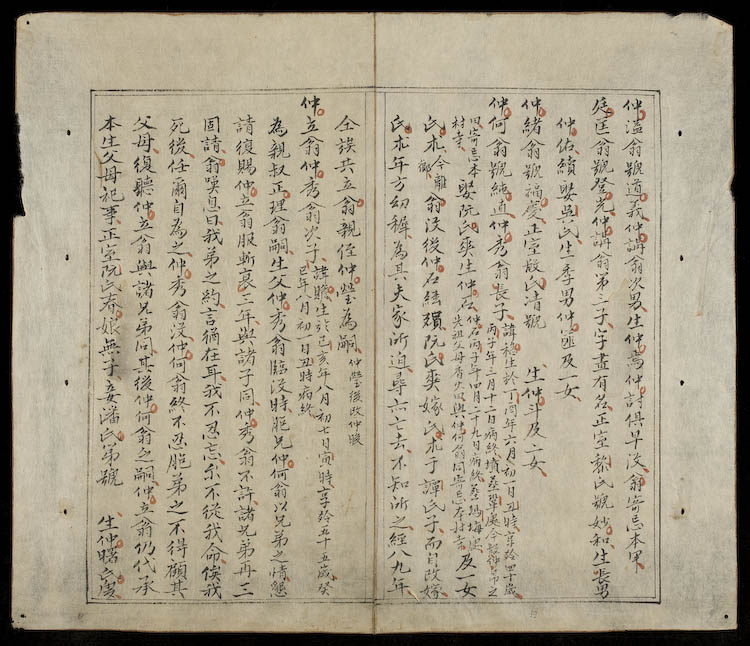 仲溢翁號道義仲講翁次男生仲 仲討俱早没翁寄忌本甲
廷匡翁號登光仲講翁第三子字畫有名正室黎氏號妙和生長男
仲佑續娶吳氏生一季男仲 及一女
仲緒翁號福慶正室 氏清號 生仲斗及二女
仲何翁號純直仲秀翁長子 諱 生於丁酉年六月初一日丑時享齡四十歲
丙子年三月十二日病終墳墓
田寄忌本村寺 娶阮氏爽生仲名 仲名丙子年四月二十九日病終墓
先祖父母香火田與仲何翁同寄忌本村寺 及一女
氏求 今離鄉 翁没後仲名繼殞阮氏爽嫁氏求于譚氏子而自改嫁
氏求年方幼稺為其夫家所迫尋亦亡去不知所之經八九年
仝族共立翁親侄仲瑩為嗣 仲瑩後改仲
仲立翁仲秀翁次子 諱贍生於己亥年八月初七日寅時享齡五十五歲癸
巳年八月初一日丑時病終
為親叔正理翁嗣生父仲秀翁臨没時胞兄仲何翁以兄弟之情懇
請復賜仲立翁服斬衰三年與諸子同仲秀翁不許諸兄弟再三
固請翁嘆息曰我弟之約言猶在耳我不忍忘尔不從我命俟我
死後任爾自為之仲秀翁没仲何翁終不忍胞弟之不得顧其
父母復聽仲立翁與諸兄弟同其後仲何翁之嗣仲立翁仍代承
本生父母祀事正室阮氏春娘無子妾潘氏第號 生仲曙 虔